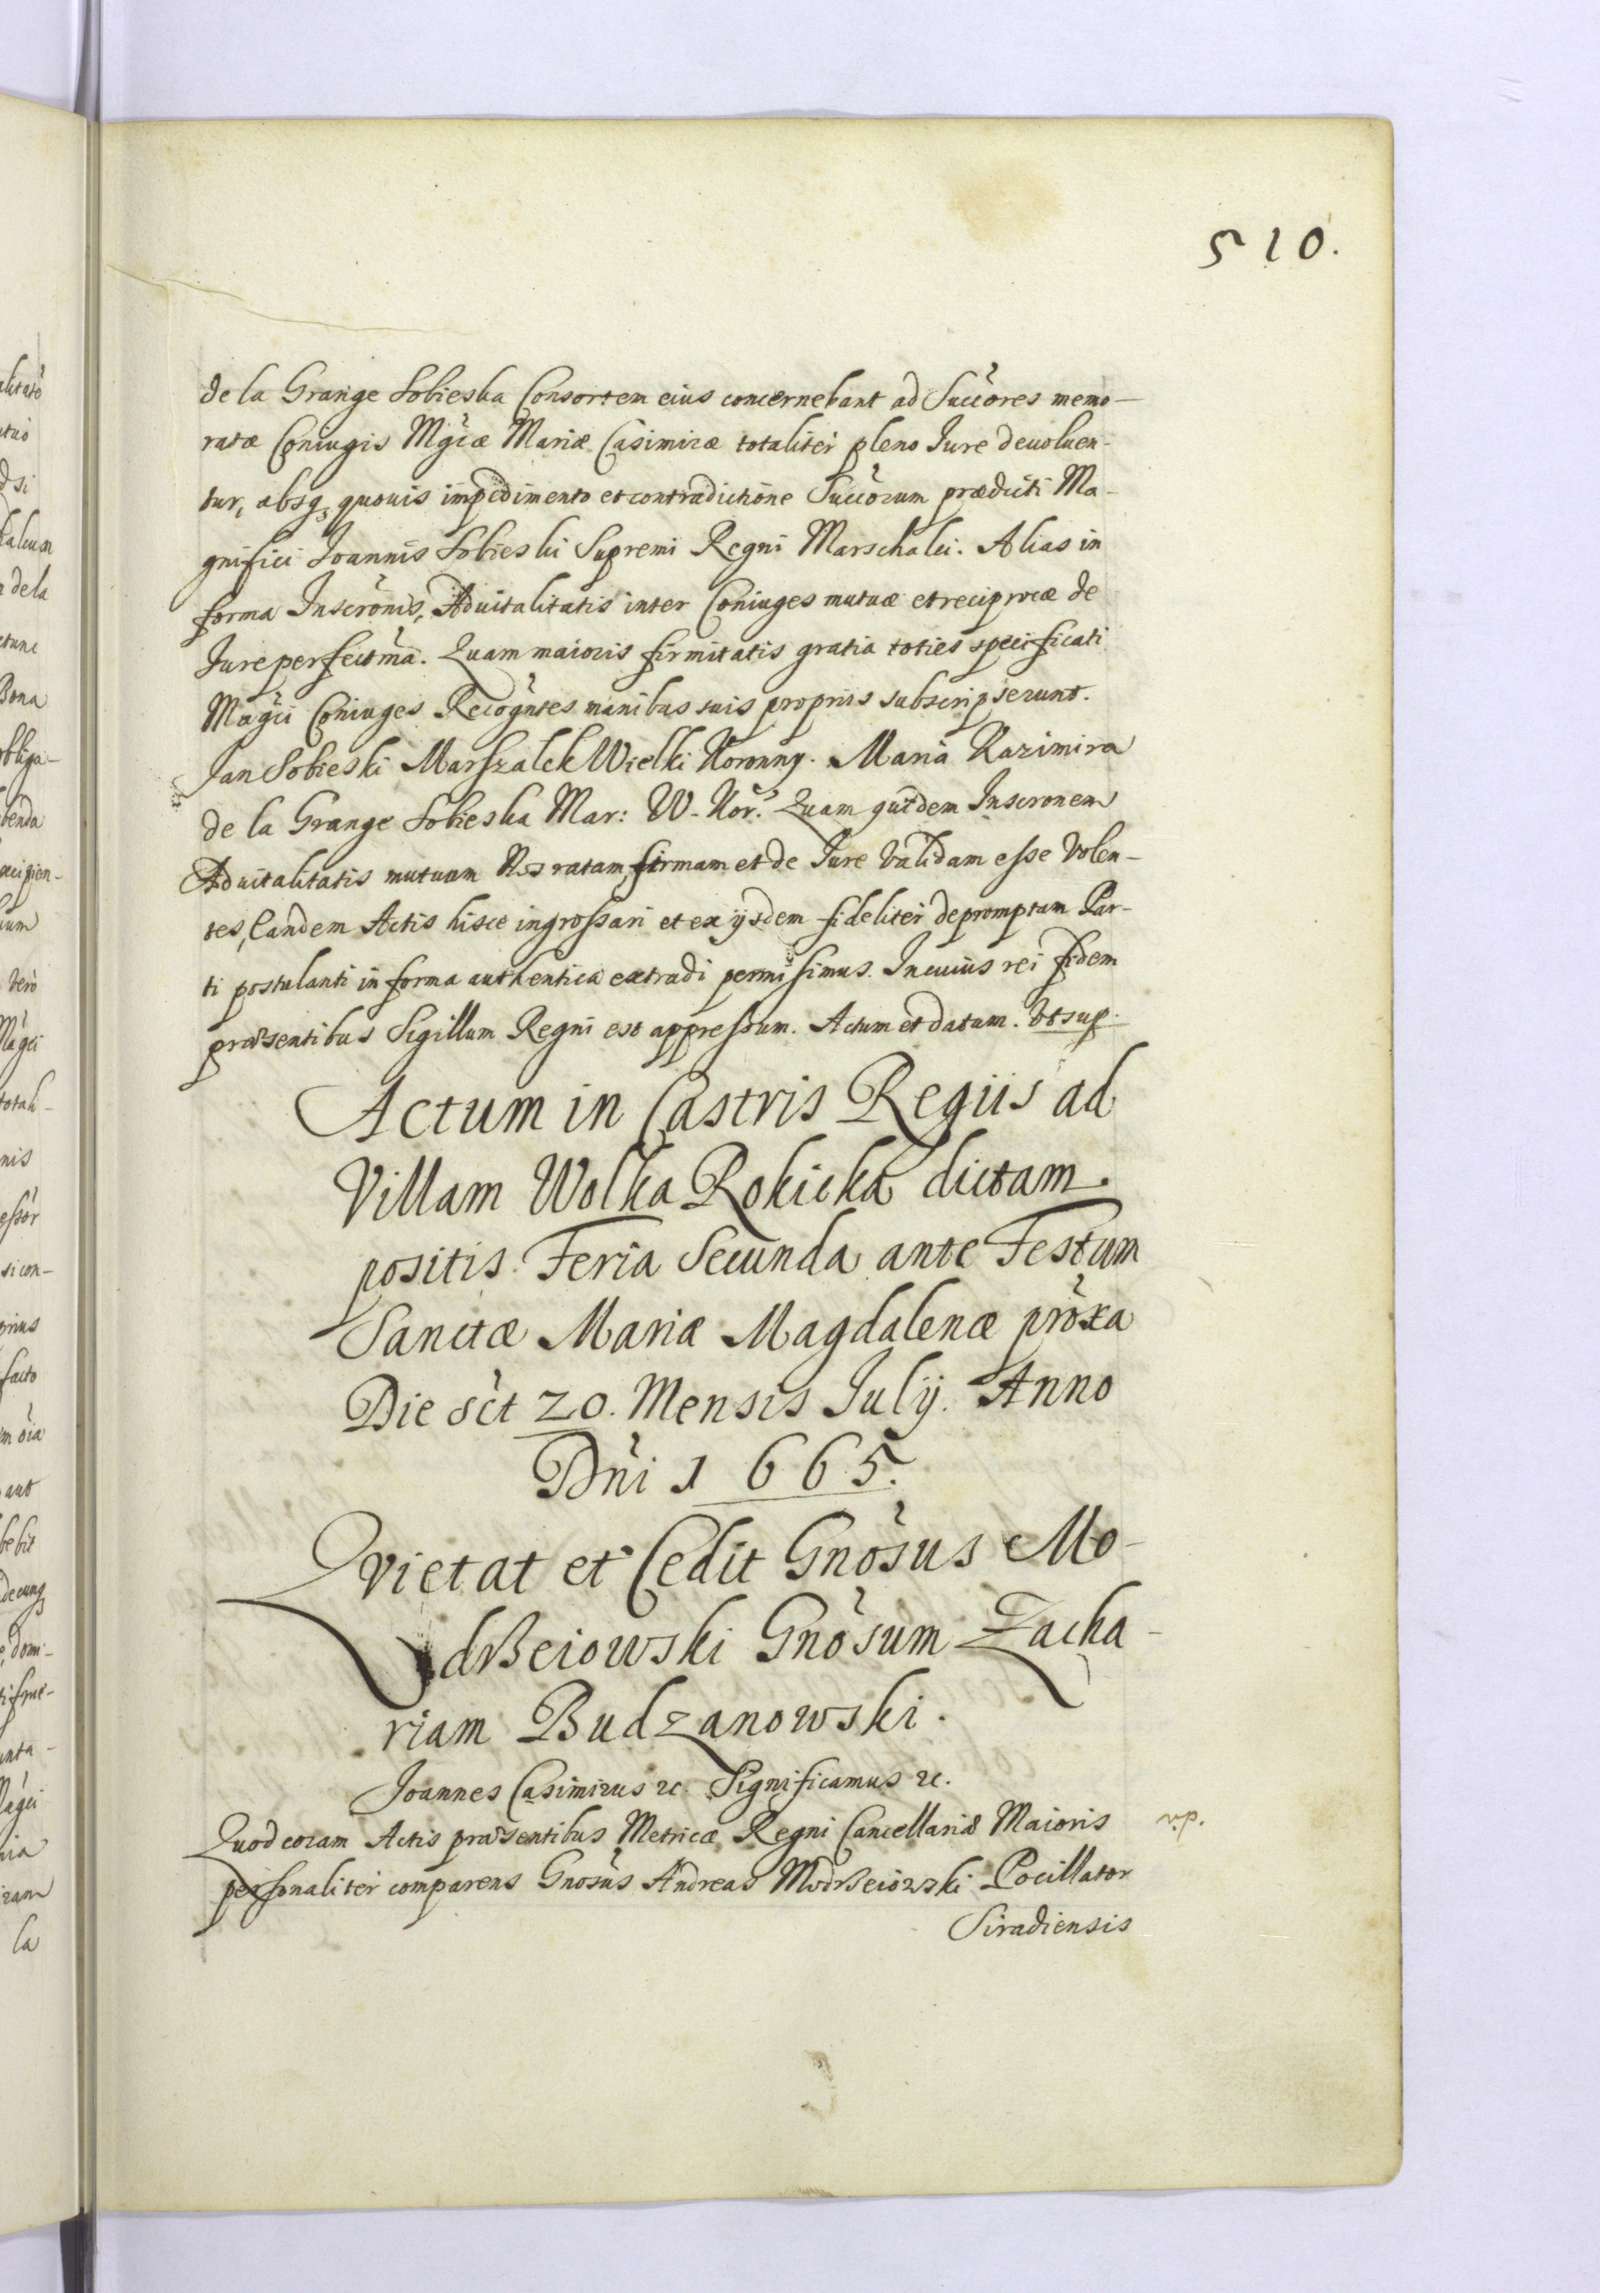 510.
de la Grange Sobieska Consortem eius concernebant ad Succores memo-
ratæ Coniugis Mgcæ Mariæ Casimiræ totaliter pleno Iure deuoluen-
tur, absq; quouis impedimento et contradictione Succorum prædicti Ma-
gnifici Joannis Sobieski Supremi Regni Marschalci. Alias in
forma Inscronis, Aduitalitatis inter Coniuges mutuæ et reciprocæ de
Iure perfectma. Quam maioris firmitatis gratia toties specificati
Magci Coniuges Recogntes manibus suis proprijs subscripserunt.
Jan Sobieski Marszalek Wielki Koronny. Maria Kazimira
de la Grange Sobieska Mar: W. Kor. Quam quidem Inscronem
Aduitalitatis mutuam Nos ratam, firmam et de Iure validam esse volen-
tes, Eandem Actis hisce ingrossari et ex ijsdem fideliter depromptam Par-
ti postulanti in forma authentica extradi permisimus. In cuius rei fidem
præsentibus Sigillum Regni est appressum. Actum et datum. Vt sup.
Actum in Castris Regiis ad
Villam Wolka Rokicka dictam
positis. Feria Secunda ante Festum
Sanctæ Mariæ Magdalenæ proxa
Die sct 20. Mensis Iulij. Anno
Dni 1665.
Qvietat et Cedit Gnosus Mo-
drzeiowski Gnosum Zacha-
riam Budzanowski.
Joannes Casimirus &c. Significamus &c.
Quod coram Actis præsentibus Metricæ Regni Cancellariæ Maioris
v.p.
personaliter comparens Gnosus Andreas Modrzeiowski Pocillator
Siradiensis